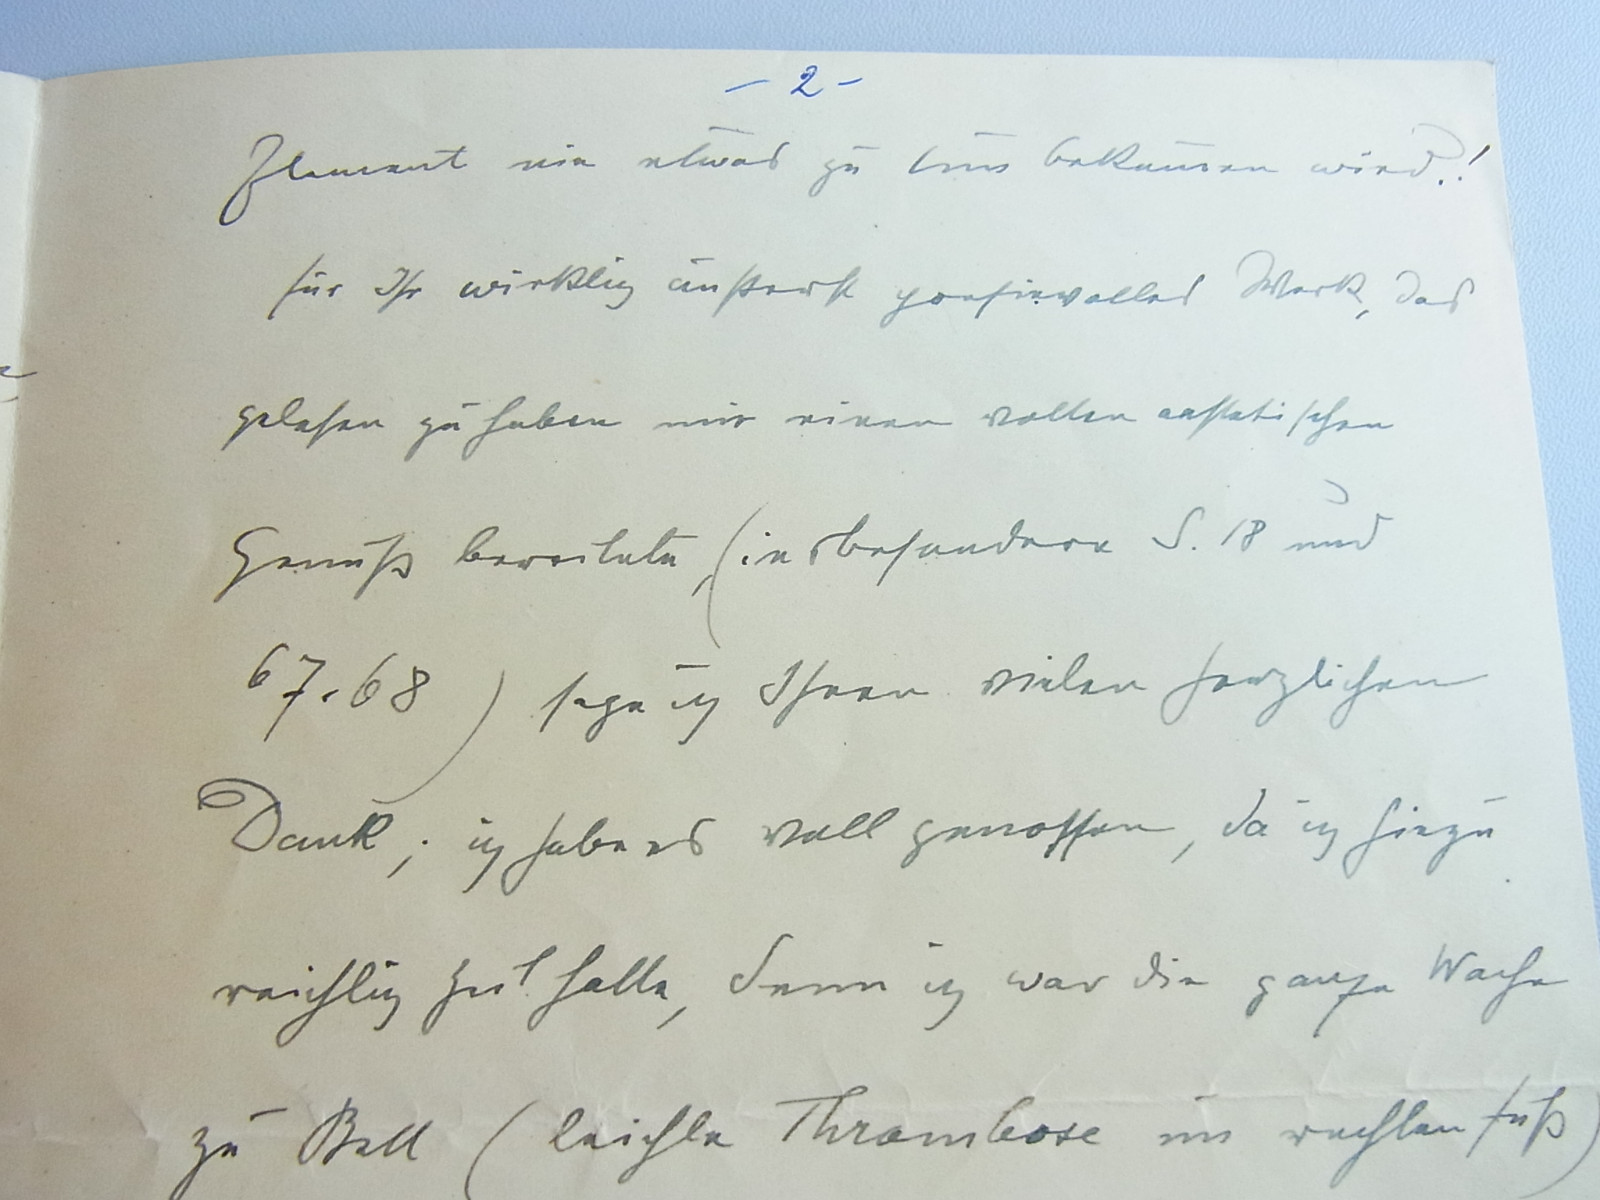 - 2 -
Element nie etwas zu tun bekommen wird!
für Ihr wirklich äußerst poesievolles Werk, das
gelesen zu haben mir einen vollen aesthetischen
Genuß bereitete, (insbesondere S. 18 und
67.68) sage ich Ihnen vielen herzlichen
Dank; ich habe es voll genossen, da ich hiezu
reichlich Zeit hatte, denn ich war die ganze Woche
zu Bett (leichte Thrombose im rechten Fuß)